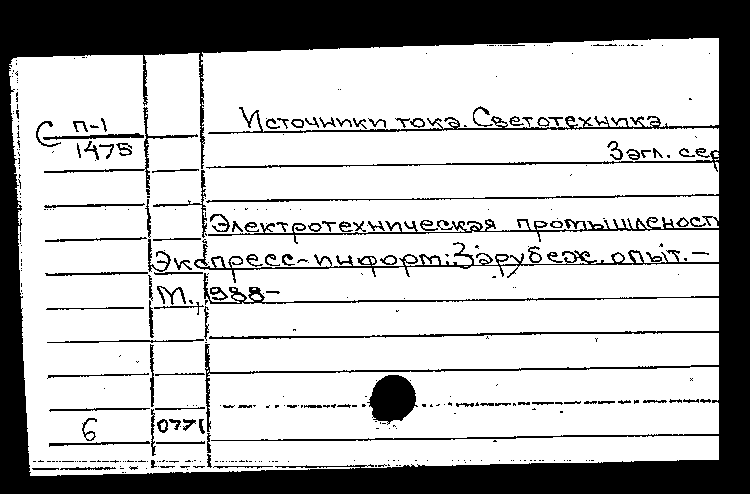 С П-1
1475
Источники тока. Светотехника.
Загл. сер
Электротехническая промышленост
Экспресс-информ. Зарубеж. опыт. –
М., 1988–
6 0771